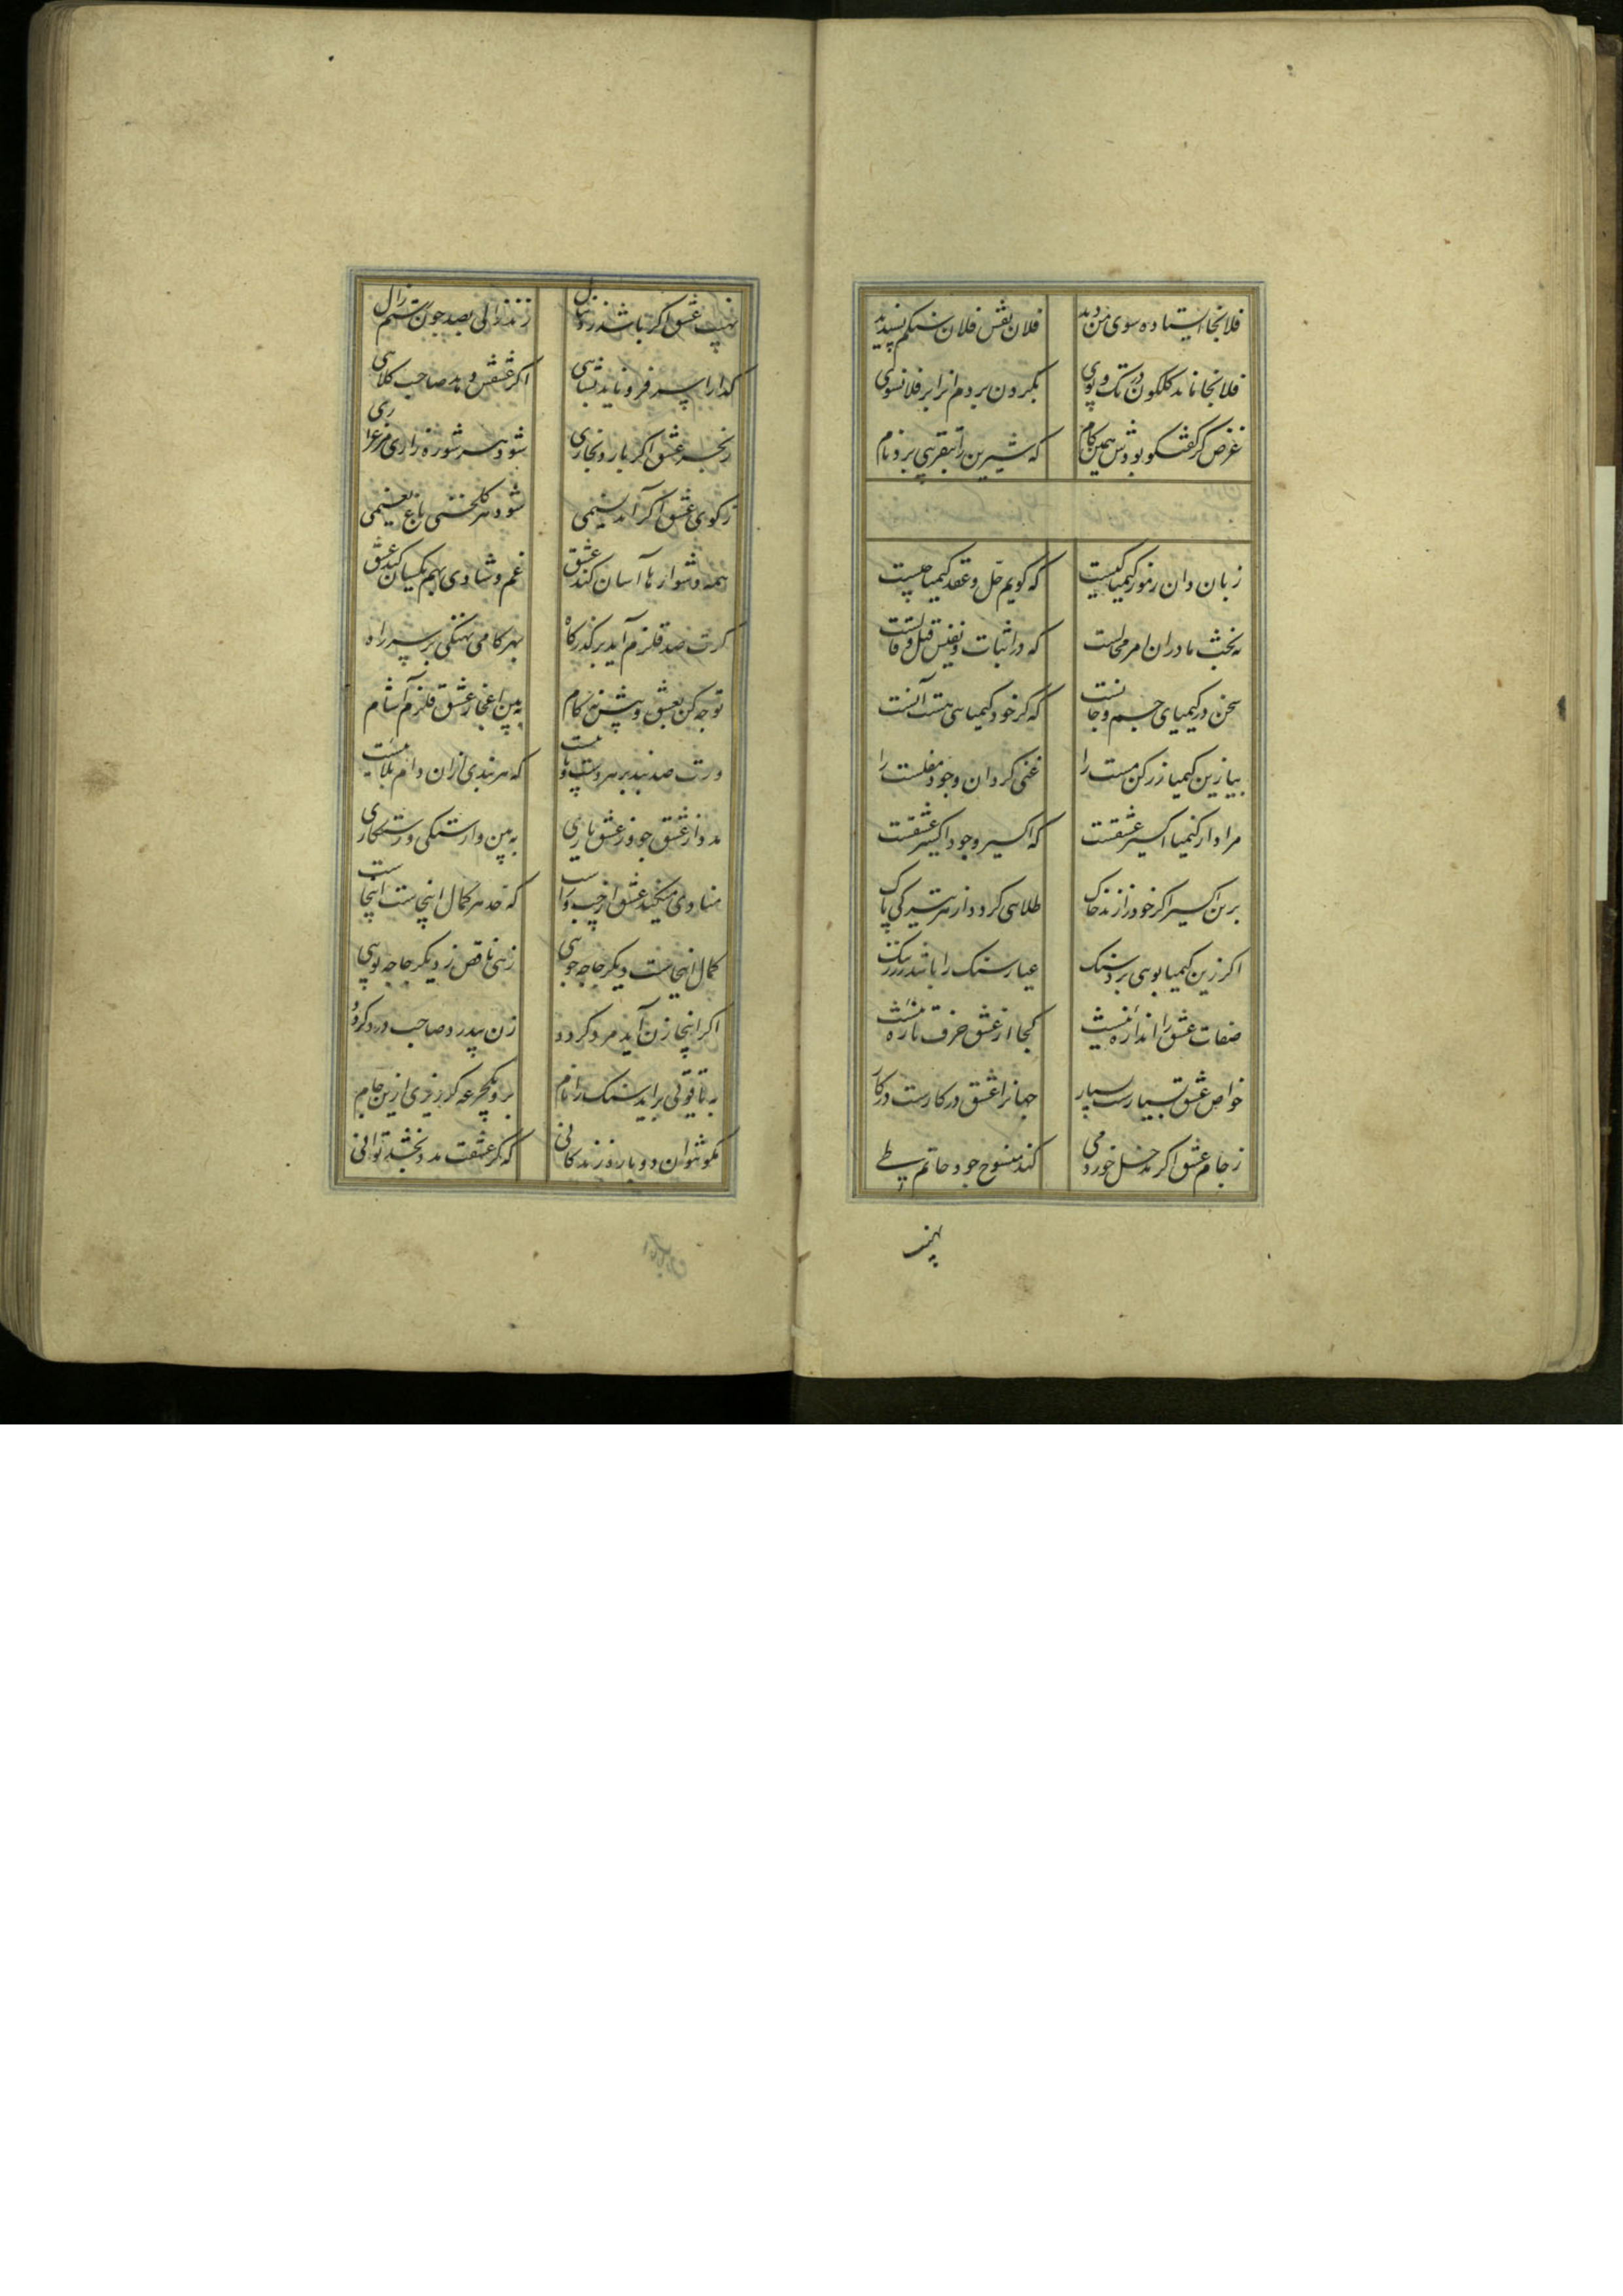 فلانجا ایستاده سوی من دید
فلان نقش فلان سنکم پسندید
فلانجا ماند کلکون در تک و پوی
بکردن بردم انرا بر فلانسوی
غرض کر کفتکو بودش همین کام
که شیرین را بتقریبی برد نام
زبان دان رموز کیمیا کیست
که کویم حل و عقد کیمیا چیست
نه بحث ما در ان امر محالست
که در اثبات و نفیش قیل و قالست
سخن در کیمیای جسم و جانست
که کر خود کیمیایی هست آنست
بیا زین کیمیا زر کن مست را
غنی کردان وجود مفلست را
مراد از کیمیا اکسیر عشقست
که اکسیر وجود اکسیر عشقست
برین اکسیر اکر خود را زند خاک
طلایی کردد از هر تیرکی پاک
اکر زین کیمیا بویی برد سنک
عیار سنک را باشد زر ننک
صفات عشق را اندازه نیست
کجا از عشق حرف تازه نیست
خواص عشق بسیارست بسیار
جهانرا عشق در کارست در کار
ز جام عشق اکر مدخل خورد می
کند منسوخ جود حاتم طی
نهیب
نهیب عشق اکر باشد ز دنبال
زند زالی بصد چون رستم زال
کدا را سر فرو ناید بشاهی
اکر عشقش دهد صاحب کلاهی
ز بحر عشق اکر بارد بخاری
شود هر شوره زاری مرغزاری
ز کوی عشق اکر آید نسیمی
شود هر کلخنی باغ نعیمی
همه دشوارها آسان کند عشق
غم و شادی بهم یکسان کند عشق
کرت صد قلزم آید بر کذرکاه
بهر کامی نهنکی بر سر راه
توجه کن بعشق و پیش نه کام
به بین اعجاز عشق قلزم آشام
ورت صد بند بر هر دست و پا هست
که هر بندی ازان دام بلا هست
مدد از عشق جو وز عشق یاری
به بین وارستکی و رستکاری
منادی میکند عشق از چپ و راست
که حد هر کمال اینجاست اینجاست
کمال اینجاست دیکر جا چه جویی
زهی ناقص ز دیکر جا چه پویی
اکر اینجا زن آید مرد کردد
زن بیدرد صاحب درد کردد
به یاقوتی براید سنک را نام
برو یکجرعه کر ریزی ازین جام
مکو نتوان دوباره زندکانی
که کر عشقت مدد بخشد توانی